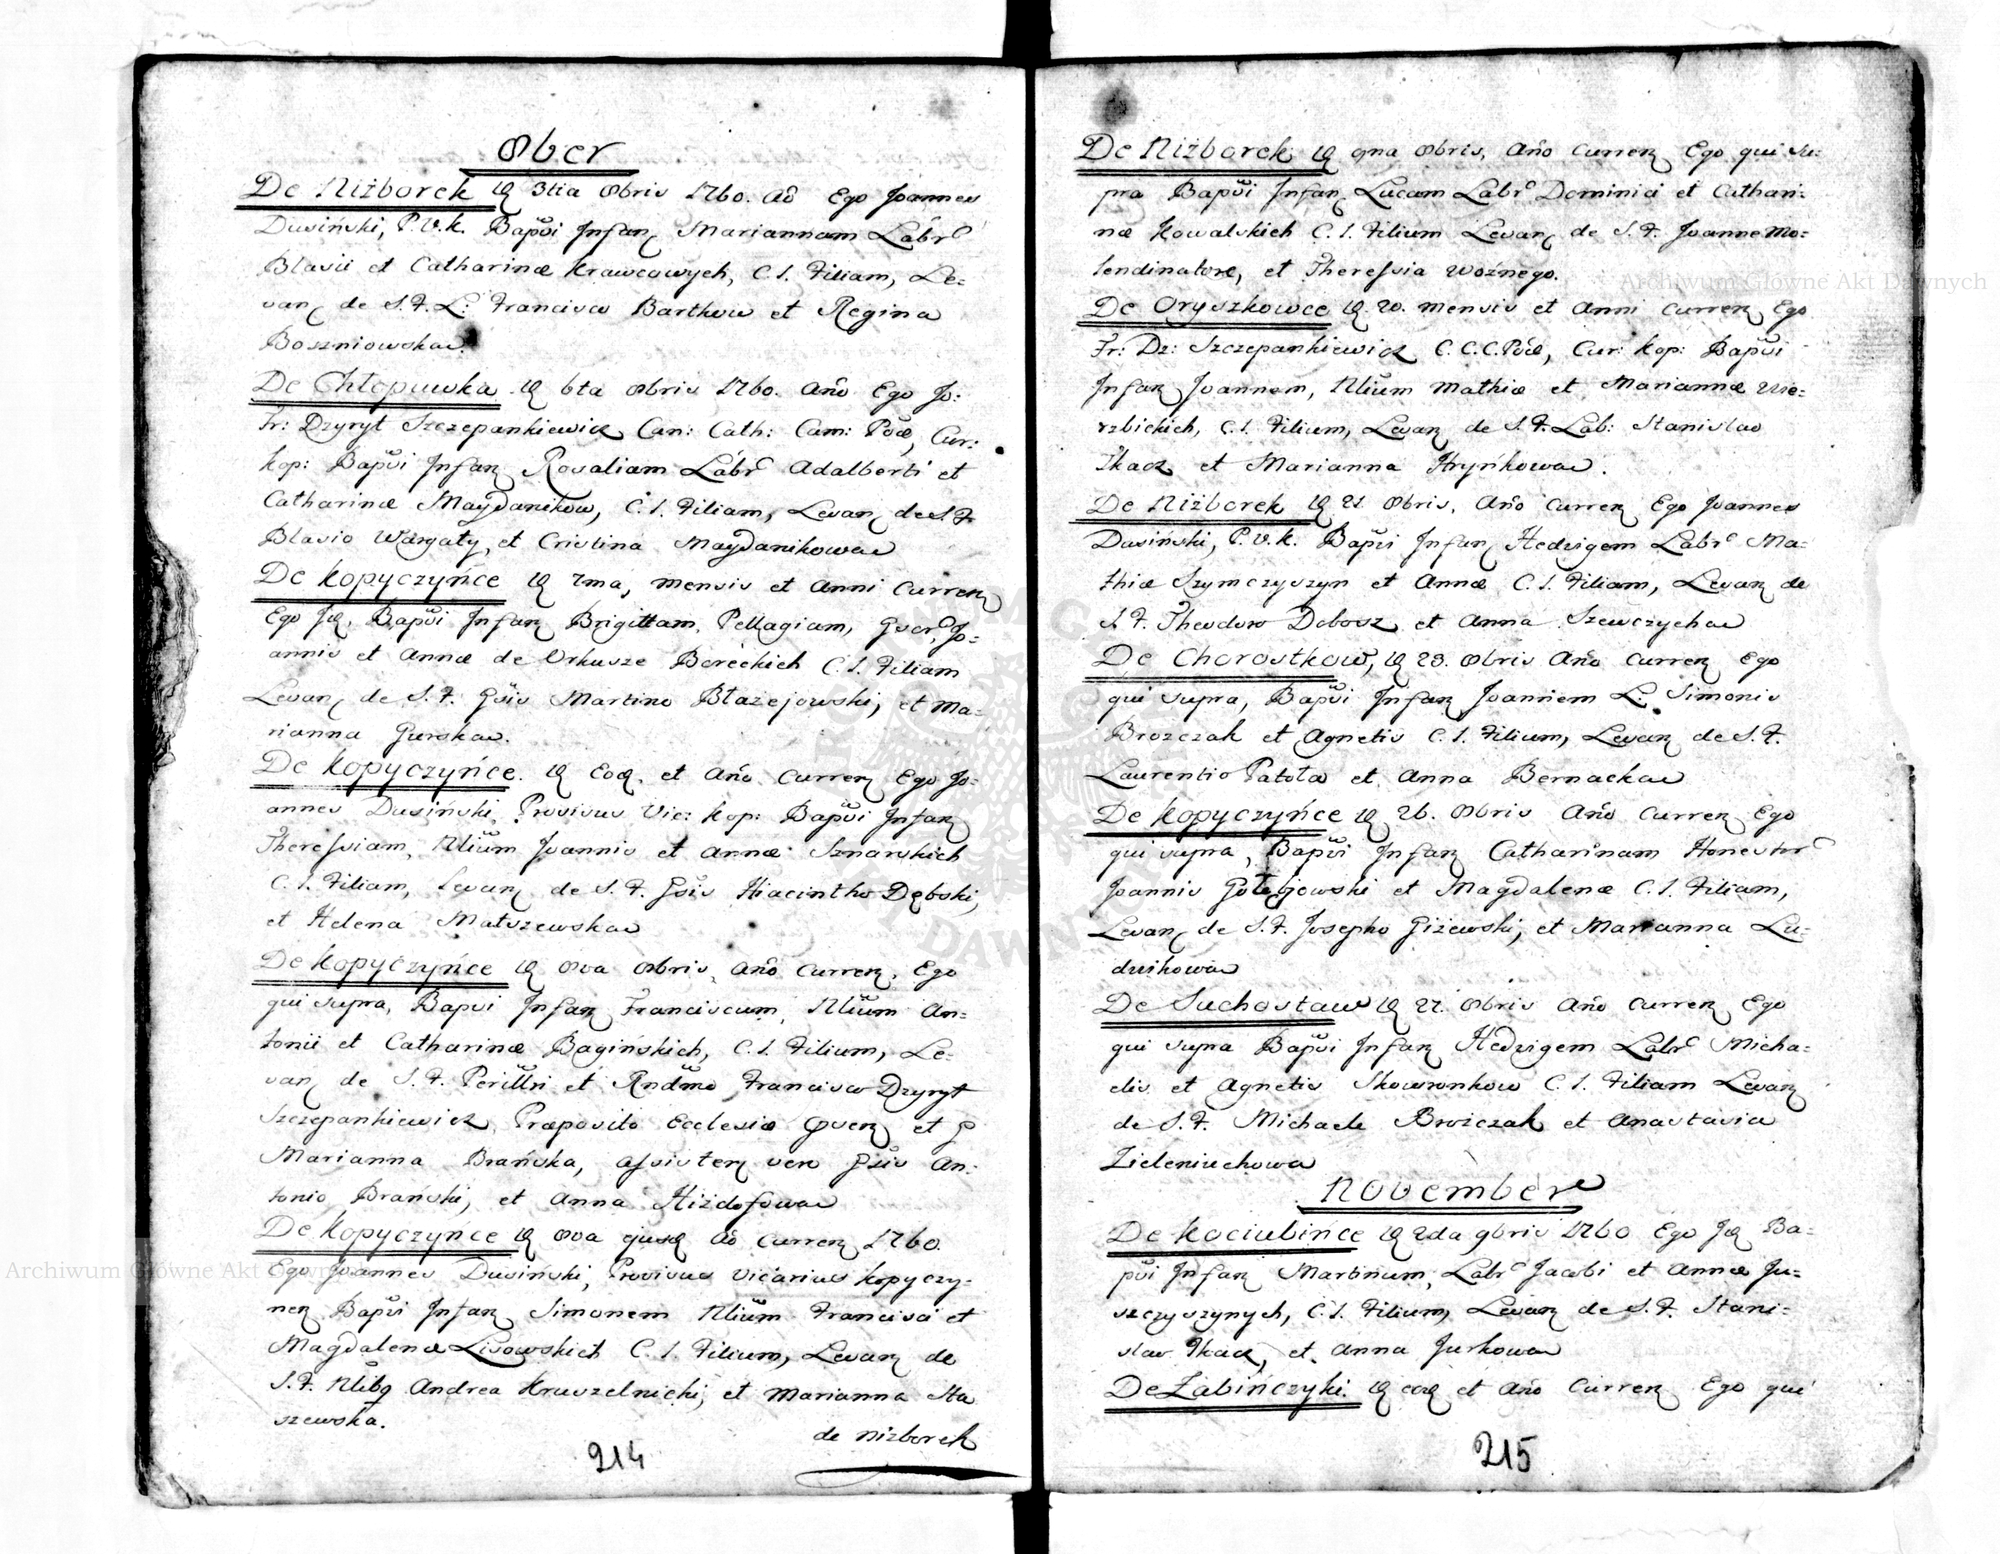 8ber
De Niżborek id 3tia 8bris 1760. Aõ Ego Joannes
Dusiński, P.V.K. Bapvi Infan Mariannam Labr
Blasii et Catharinæ Krawcowych, C. L. Filiam, Le=
van de S.F. L: Francisco Bartkow et Regina
Boszniowska.
De Chłopuwka id 6ta 8bris 1760. Año Ego Jo:
Fr: Dzyryt Szczepankiewicz Can: Cath: Cam: Pod, Cur:
kop: Bapvi Infan Rosaliam Labr Adalberti et
Catharinæ Maydanikow, C. L. Filiam, Levan de S.F.
Blasio Wargaty, et Cristina Maydanikowa
De Kopyczyńce id 7ma, mensis et Anni Curren
Ego Id, Bapvi Infan Brigittam, Pellagiam, Gner, Jo=
annis et Annæ de Orkusze Boreckich C. L. Filiam
Levan de S.F. Gsis Martino Błazejowski, et Ma=
rianna Gurska.
De Kopyczyńce. id Eod. et Año Curren Ego Jo=
annes Dusiński, Provisus Vic: Kop: Bapvi Infan
Theressiam, Nlium Joannis et Annæ Sznarskich
C. L. Filiam, Levan de S.F. Gsis Hiacintho Dębski,
et Helena Matszewska
De Kopyczyńce id 8va 8bris, Año Curren. Ego
qui supra, Bapvi Infan Franciscum, Nlium An=
tonii et Catharinæ Bagińskich, C. L. Filium, Le=
van de S.F. Perilltri et Rndmo Francisco Dzyryt
Szczepankiewicz, Præposito Ecclesiæ et
Marianna Brańska, assisten vero Gsis An=
tonio Brański, et Anna Hizdofowa
De Kopyczyńce id 8va ejusd Aõ Curren 1760.
Ego Joannes Dusiński, Provisus Vicarius Kopyczy=
nen Bapvi Infan Simonem Nlium Francisci et
Magdalenæ Lisowskich C. L. Filium, Levan de
S.F. Nlibq Andrea Kruszelnicki, et Marianna Sta
szewska.
de Nizborek
214
De Niżborek id 9na 8bris, Año Curren Ego qui su=
pra Bapvi Infan Lucam Labr Dominici et Cathari=
næ Kowalskich C. L. Filium Levan de S.F. Joanne Mo=
lendinatore, et Theressia Woźnego.
De Oryszkowce id 20. mensis et Anni Curren Ego
Fr: Dz: Szczepankiewicz C. C. C. Pod, Cur: Kop: Bapvi
Infan Joannem, Nlium Mathiæ et Mariannæ Wie=
rzbickich, C. L. Filium, Levan de S.F. Lab: Stanislao
Tkacz et Marianna Hryńkowa.
De Niżborek id 21 8bris, Año Curren Ego Joannes
Dusiński, P.V.K. Bapvi Infan Hedvigem Labr Ma=
thiæ Szymczyszyn et Annæ C. L. Filiam, Levan de
S.F. Theodoro Dobosz et Anna Szewczycha
De Chorostkow, id 23. 8bris Año Curren Ego
qui supra, Bapvi Infan Joannem L: Simonis
Brozczak et Agnetis C. L. Filium, Levan de S.F.
Laurentio Patoła et Anna Bernacka
De Kopyczyńce id 26. 8bris Año Curren Ego
qui supra, Bapvi Infan Catharinam Honestor
Joannis Gołejowski et Magdalenæ C. L. Filiam,
Levan de S.F. Josepho Giżewski, et Marianna Lu=
dzikowa
De Suchostaw id 27. 8bris Año Curren Ego
qui supra Bapvi Infan Hedvigem Labr Micha=
elis et Agnetis Skowronkow C. L. Filiam Levan
de S.F. Michaele Brożczak et Anastasia
Zieleniuchowa
November
De Kociubińce id 2da 9bris 1760 Ego Id Ba=
pvi Infan Martinum, Labr Jacobi et Annæ Ju=
szczyszynych, C. L. Filium, Levan de S.F. Stani=
slao Tkacz, et Anna Jurkowa
De Żabińczyki. id eod et Año Curren Ego qui
215
Archiwum Główne Akt Dawnych
Archiwum Główne Akt Dawnych